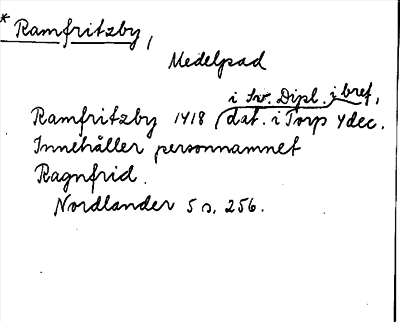 * Ramfritzby,
Medelpad
i Sv. Dipl. i bref,
Ramfritzby 1418 (dat. i Torp 4 dec.
Innehåller personnamnet
Ragnfrid.
Nordlander 5 s. 256.